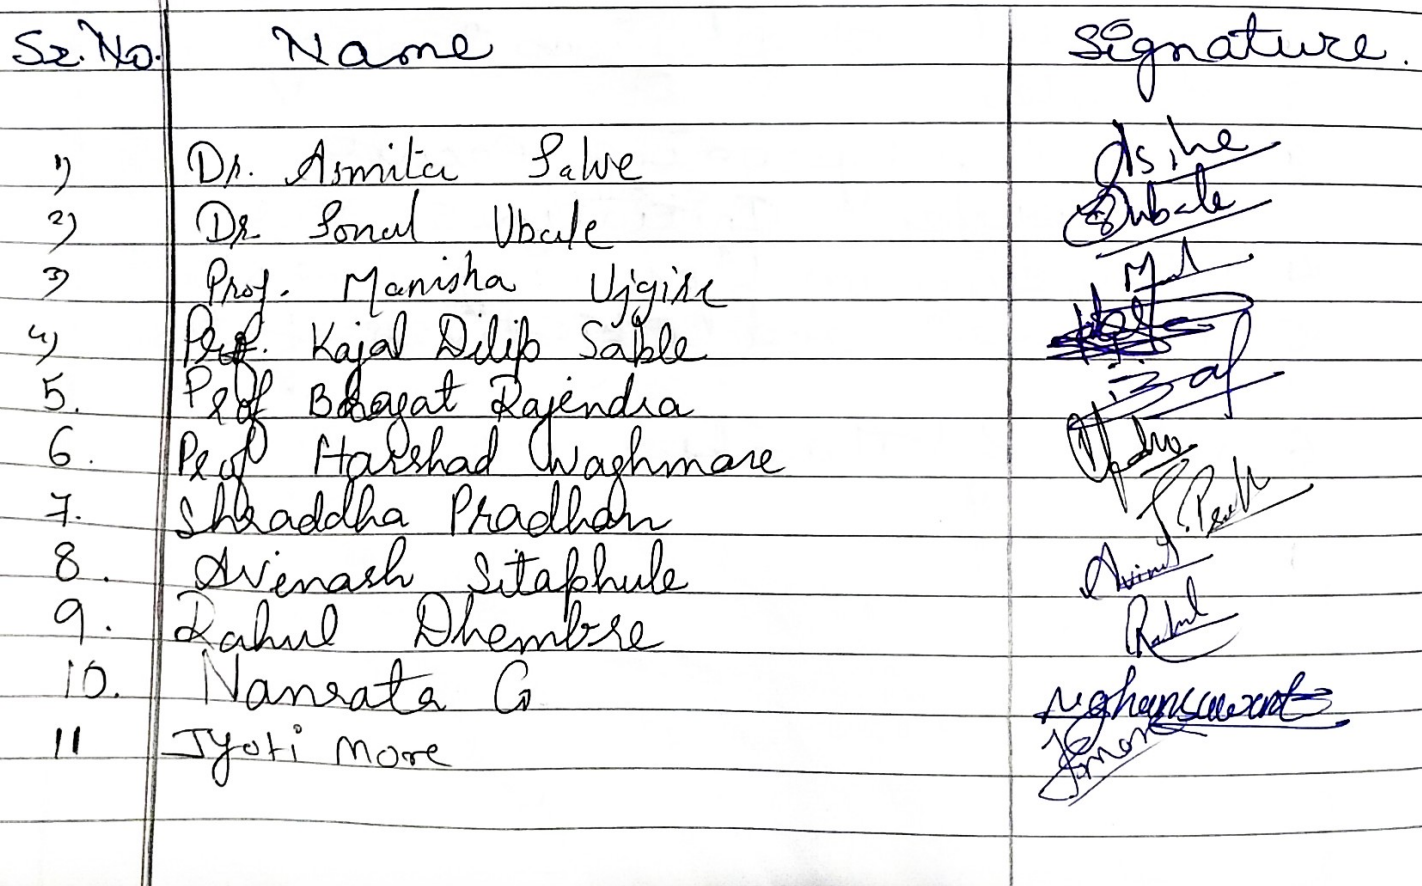 Sr. No. Name Signature.
1) Dr. Asmita Salve
2) Dr. Sonal Ubale Subale
3) Prof. Manisha Ujgire
4) Prof. Kajal Dilip Sable
5. Prof Bhagat Rajendra
6. Prof Harshad Waghmare
7. Shraddha Pradhan
8. Avinash Sitaphule
9. Rahul Dhembre Rahul
10. Namrata G
11 Jyoti More Jmore